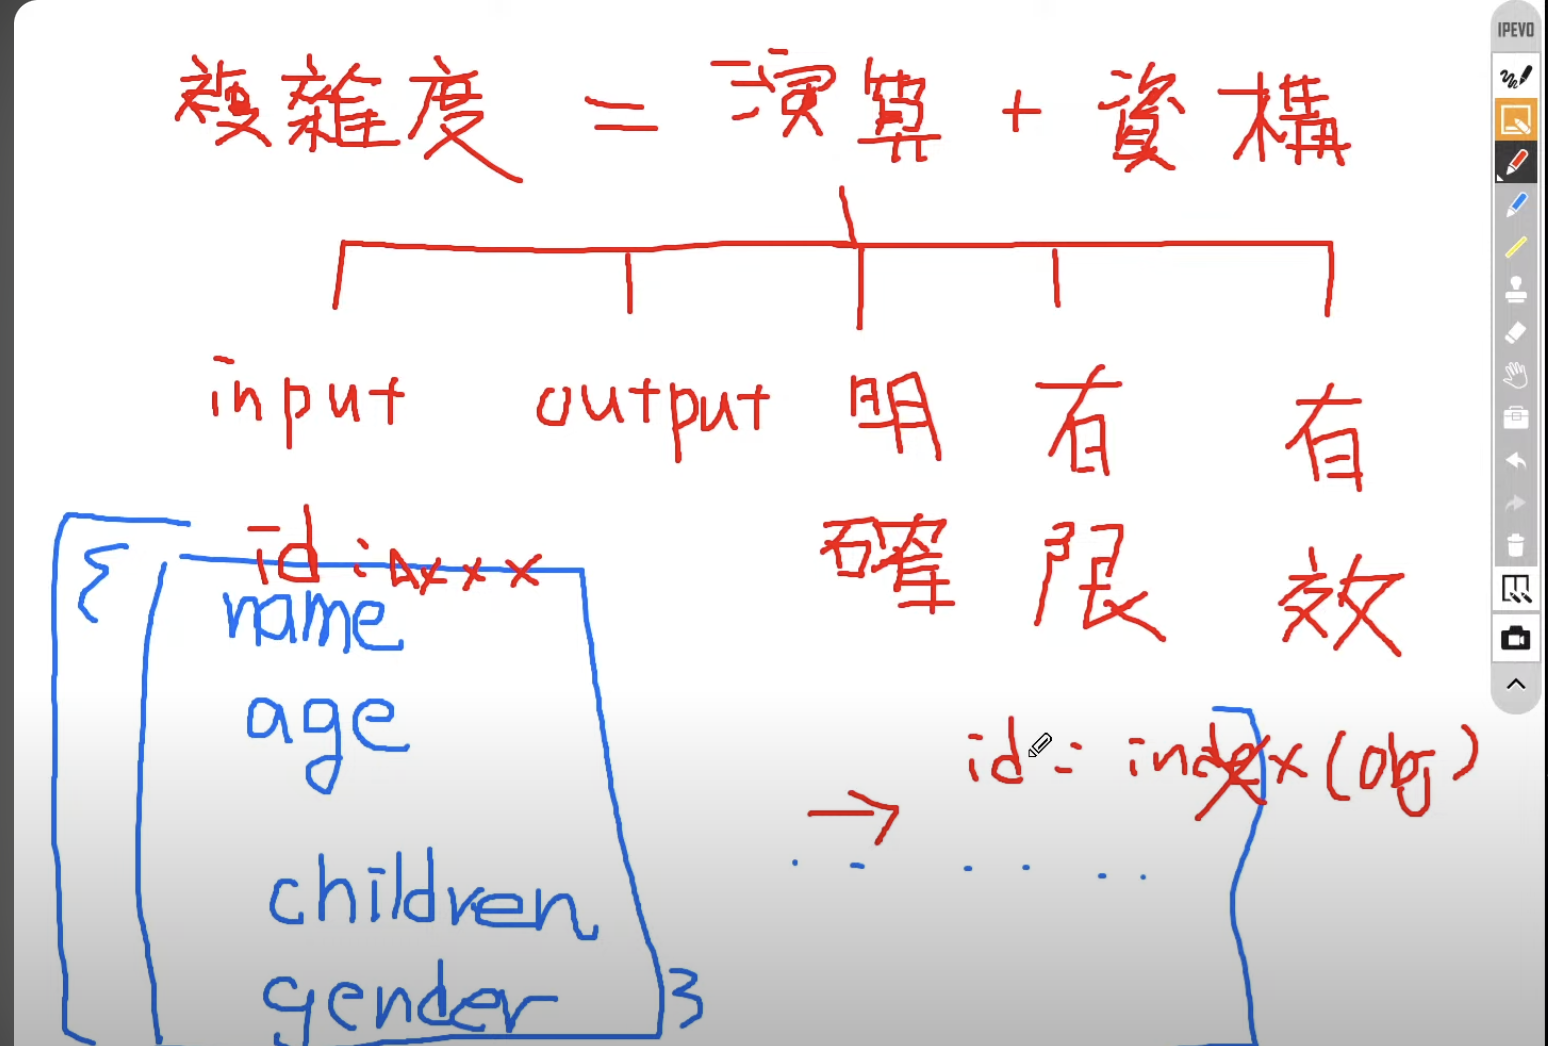 IPEVO
複雜度 = 演算 + 資構
input output 明確 有限 有效
{
id : xxx
name
age
children
gender
}
→ id = index(obj)
. . . . . .